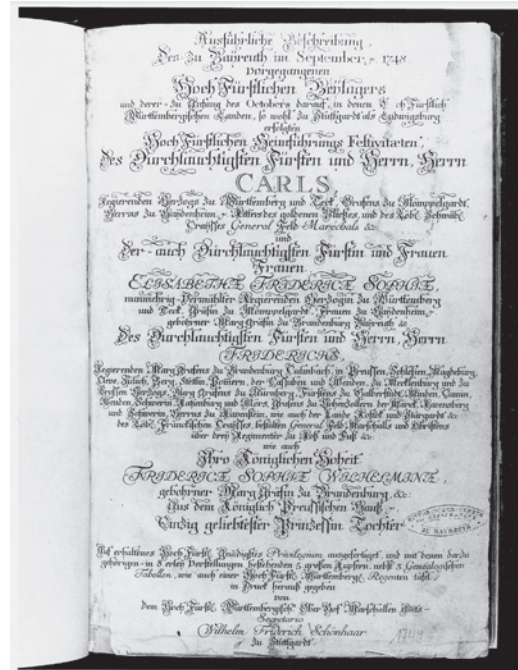 Ausführliche Beschreibung
Des zu Bayreuth im September 1748
Vorgegangenen
Hoch Fürstlichen Beylagers
und derer zu Anfang des Octobers darauf, in denen Hoch Fürstlich
Württembergischen Landen, so wohl zu Stuttgardt als Ludwigsburg
erfolgten
Hoch Fürstlichen Heimführungs Festivitæten,
Des Durchlauchtigsten Fürsten und Herrn, Herrn
CARLS,
Regierenden Herzogs zu Württemberg und Teck, Grafens zu Mömppelgardt,
Herrns zu Heydenheim, Ritters des goldenen Vließes, und des Löbl. Schwäbl.
Crayßes General Feld Marechals &c
und
Der auch Durchlauchtigsten Fürstin und Frauen
Frauen
ELISABETHÆ FRIDERICÆ SOPHIÆ,
nunmehrig Vermählter Regierenden Herzogin zu Württemberg
und Teck, Gräfin zu Mömppelgardt, Frauen zu Heydenheim,
gebohrner Marggräfin zu Brandenburg Bayreuth &c
Des Durchlauchtigsten Fürsten und Herrn, Herrn
FRIDERICHS,
Regierenden Marggrafens zu Brandenburg Culmbach, in Preussen, Schlesien, Magdeburg,
Cleve, Jülich, Berg, Stettin, Pommern, der Cassuben und Wenden, zu Mecklenburg und zu
Crossen Herzogs, Burggrafens zu Nürnberg, Fürstens zu Halberstadt, Minden, Camin,
Wenden, Schwerin, Ratzeburg und Mörs, Grafens zu Hohenzollern, der Marck, Ravensberg
und Schwerin, Herrns zu Ravenstein, wie auch der Lande Rostock und Stargardt &c
des Löbl. Fränckischen Crayßes bestallten General Feld Marschalls und Obristens
über drey Regimenter zu Roß und Fuß &c
wie auch
Ihro Königlichen Hoheit
FRIDERICÆ SOPHIÆ WILHELMINÆ,
gebohrner Marggräfin zu Brandenburg, &c
Aus dem Königlich Preussischen Hauß
Einzig geliebtester Prinzeßin Tochter
Auf erhaltenes Hoch Fürstl. Gnädigstes Privilegium ausgefertiget, und mit denen darzu
gehörigen in 8 erley Vorstellungen bestehenden 5 großen Kupfern, nebst 3 Genealogischen
Tabellen, wie auch einer Hoch Fürstl. Württemberg. Regenten tafel
in Druck heraus gegeben
von
dem Hoch Fürstl. Württembergisch. Ober Hof Marschallen Amts-
Secretario
Wilhelm Friderich Schönhaar
zu Stuttgardt
1749